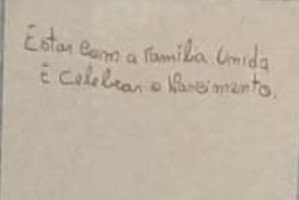 Estar com a Família Unida
É Celebrar o Nascimento.